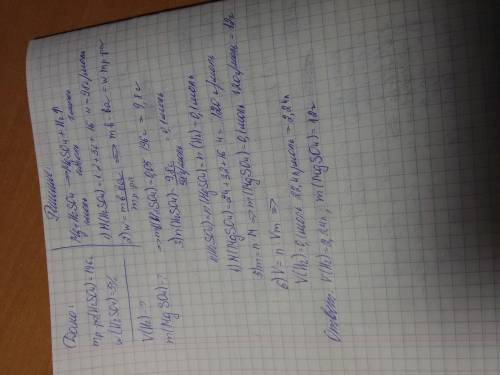 Дано:
mр-ра(H₂SO₄)=196г
w(H₂SO₄)=5%
V(H₂)-?
m(MgSO₄)-?
Решение
Mg+H₂SO₄ → MgSO₄+H₂↑
1моль 1моль
1) M(H₂SO₄)=1·2+32+16·4=98г/моль
2) w = mв-ва/mр-ра => mв-ва = w·mр-ра
=> m(H₂SO₄)=0,05·196=9,8г
3) n(H₂SO₄)= 9,8г/98г/моль = 0,1моль
n(H₂SO₄)=n(MgSO₄)=n(H₂)=0,1моль
4) M(MgSO₄)=24+32+16·4= 120г/моль
5) m=n·M => m(MgSO₄)=0,1моль·120г/моль=12г
6) V=n·Vm =>
V(H₂)=0,1моль·22,4л/моль=2,24л
Ответ: V(H₂)=2,24л, m(MgSO₄)=12г